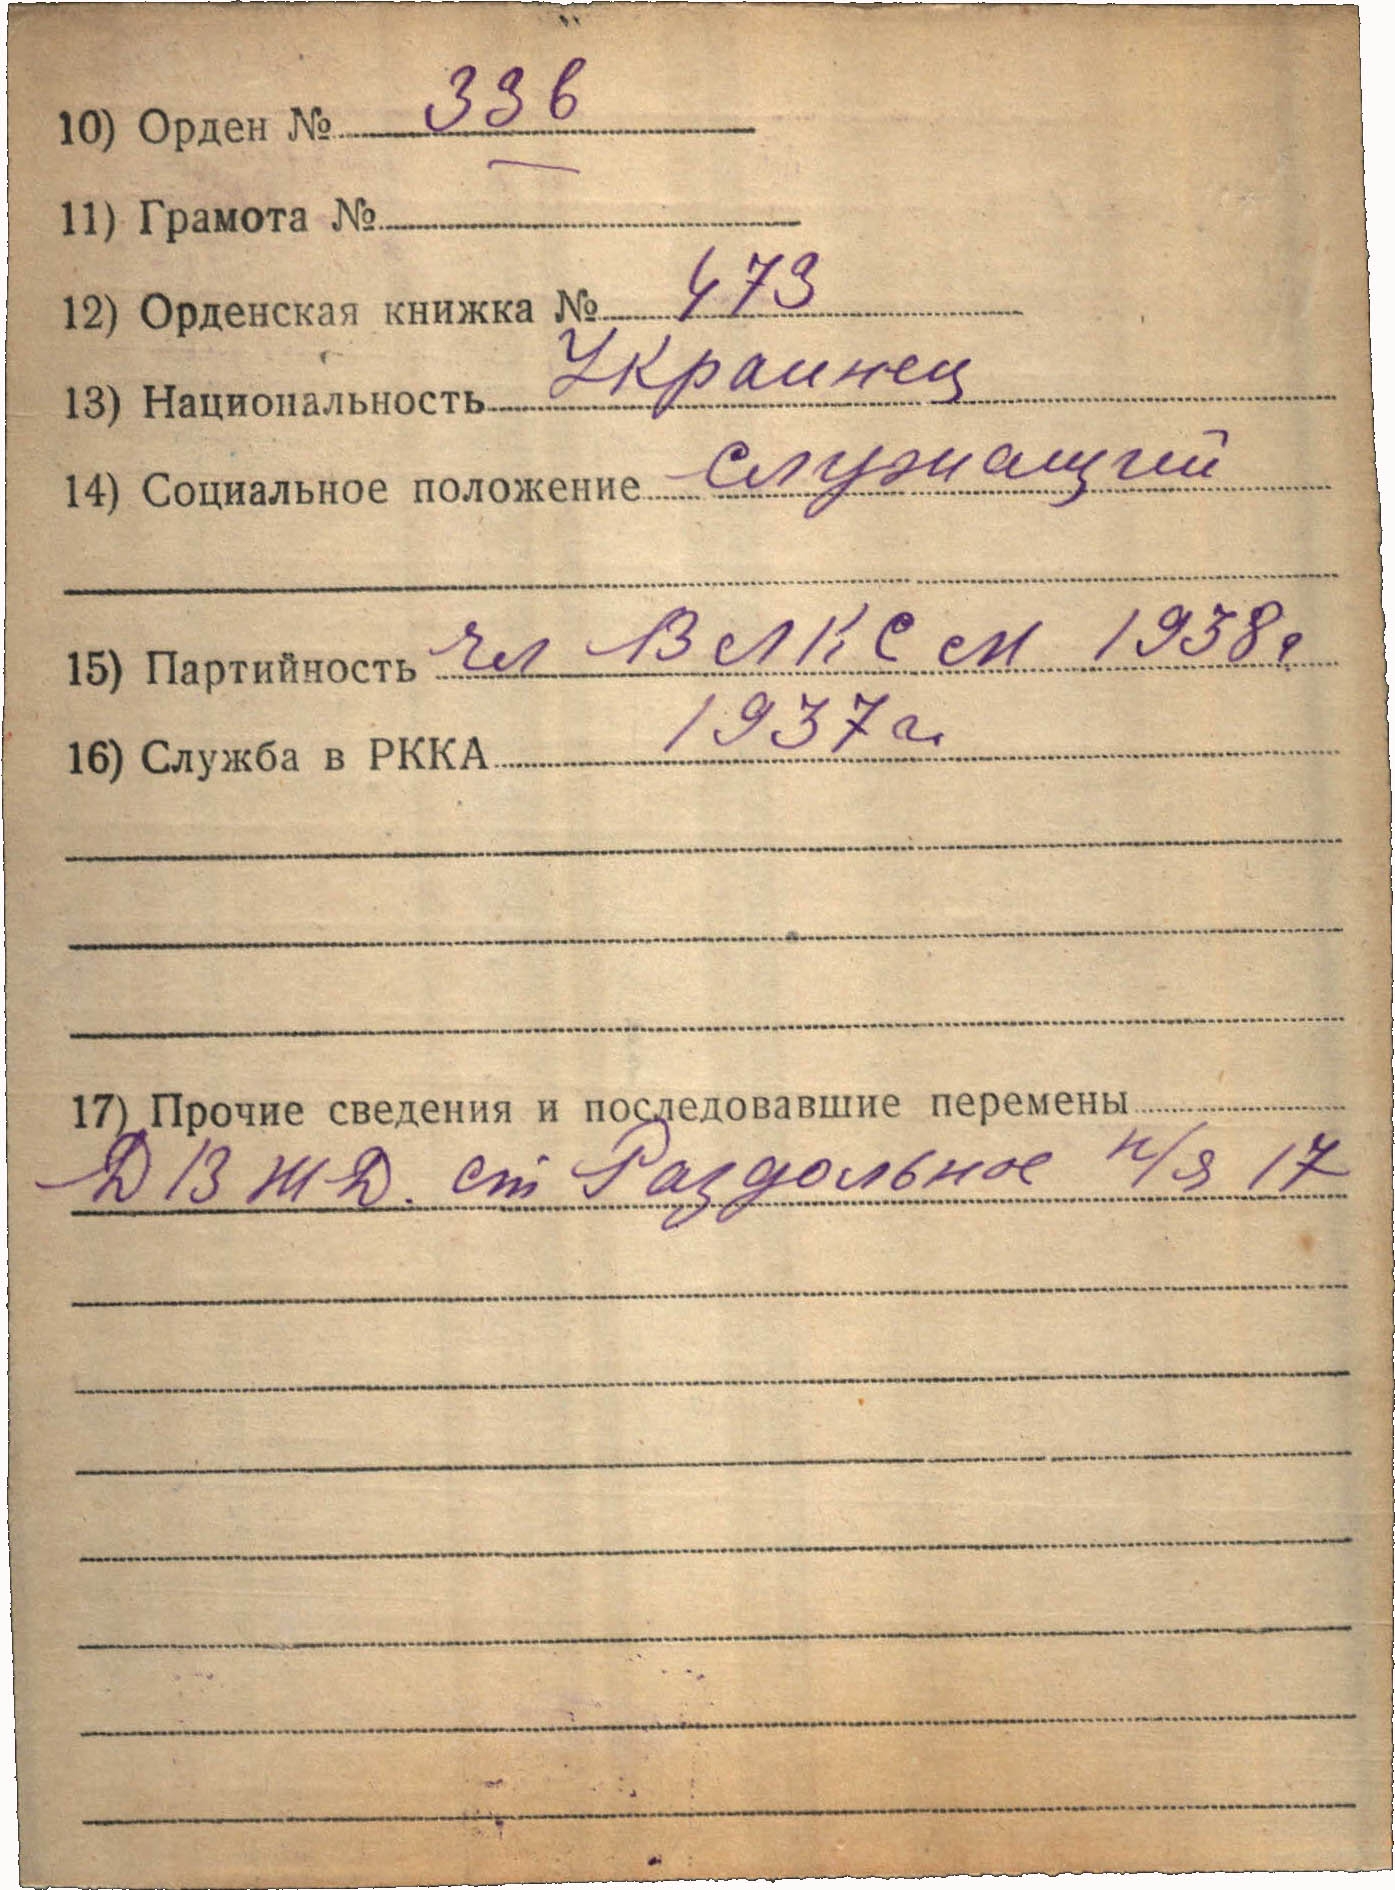 10) Орден № 336
11) Грамота №
12) Орденская книжка № 473
13) Национальность Украинец
14) Социальное положение служащий
15) Партийность чл ВЛКСМ 1938г
16) Служба в РККА 1937 г.
17) Прочие сведения и последовавшие перемены
ДВЖД. ст Раздольное п/я 17